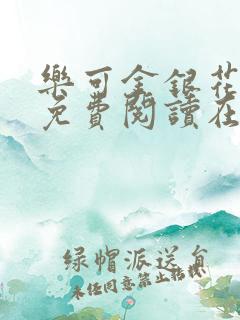 樂可金銀花
免費閱讀在
绿帽派送員
未任同意禁止轉載